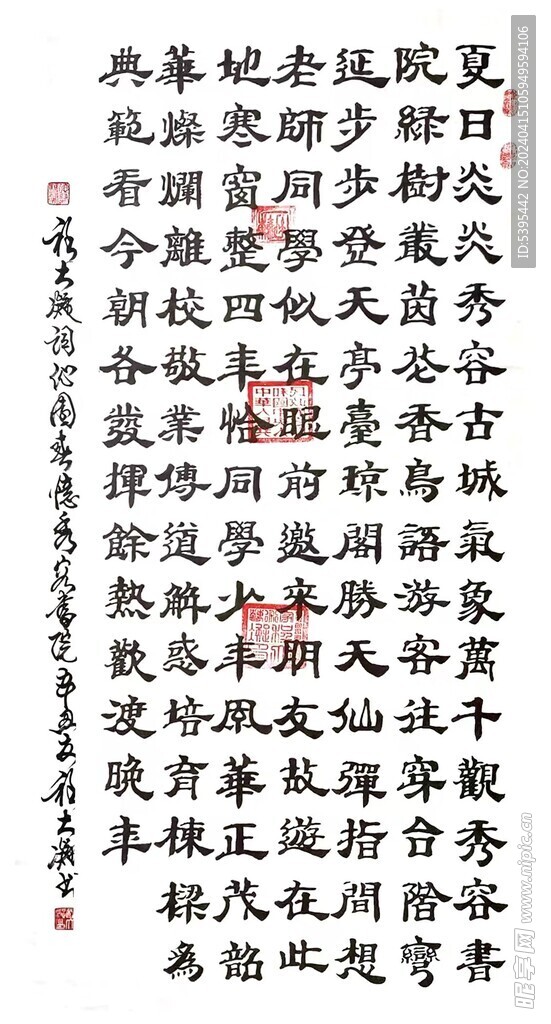 夏日炎炎秀容古城氣象萬千觀秀容書
院綠樹叢茵花香鳥語游客往穿台階彎
延步步登天亭臺琼閣勝天仙彈指間想
老師同學似在眼前邀來朋友故遊在此
地寒窗整四年恰同學少年風華正茂韶
華燦爛離校敬業傳道解惑培育棟樑為
典範看今朝各發揮餘熱歡渡晚年
詞沁園春憶秀容書院
ID:5395442 NO:20240415105949594106
昵享网 www.nipic.cn